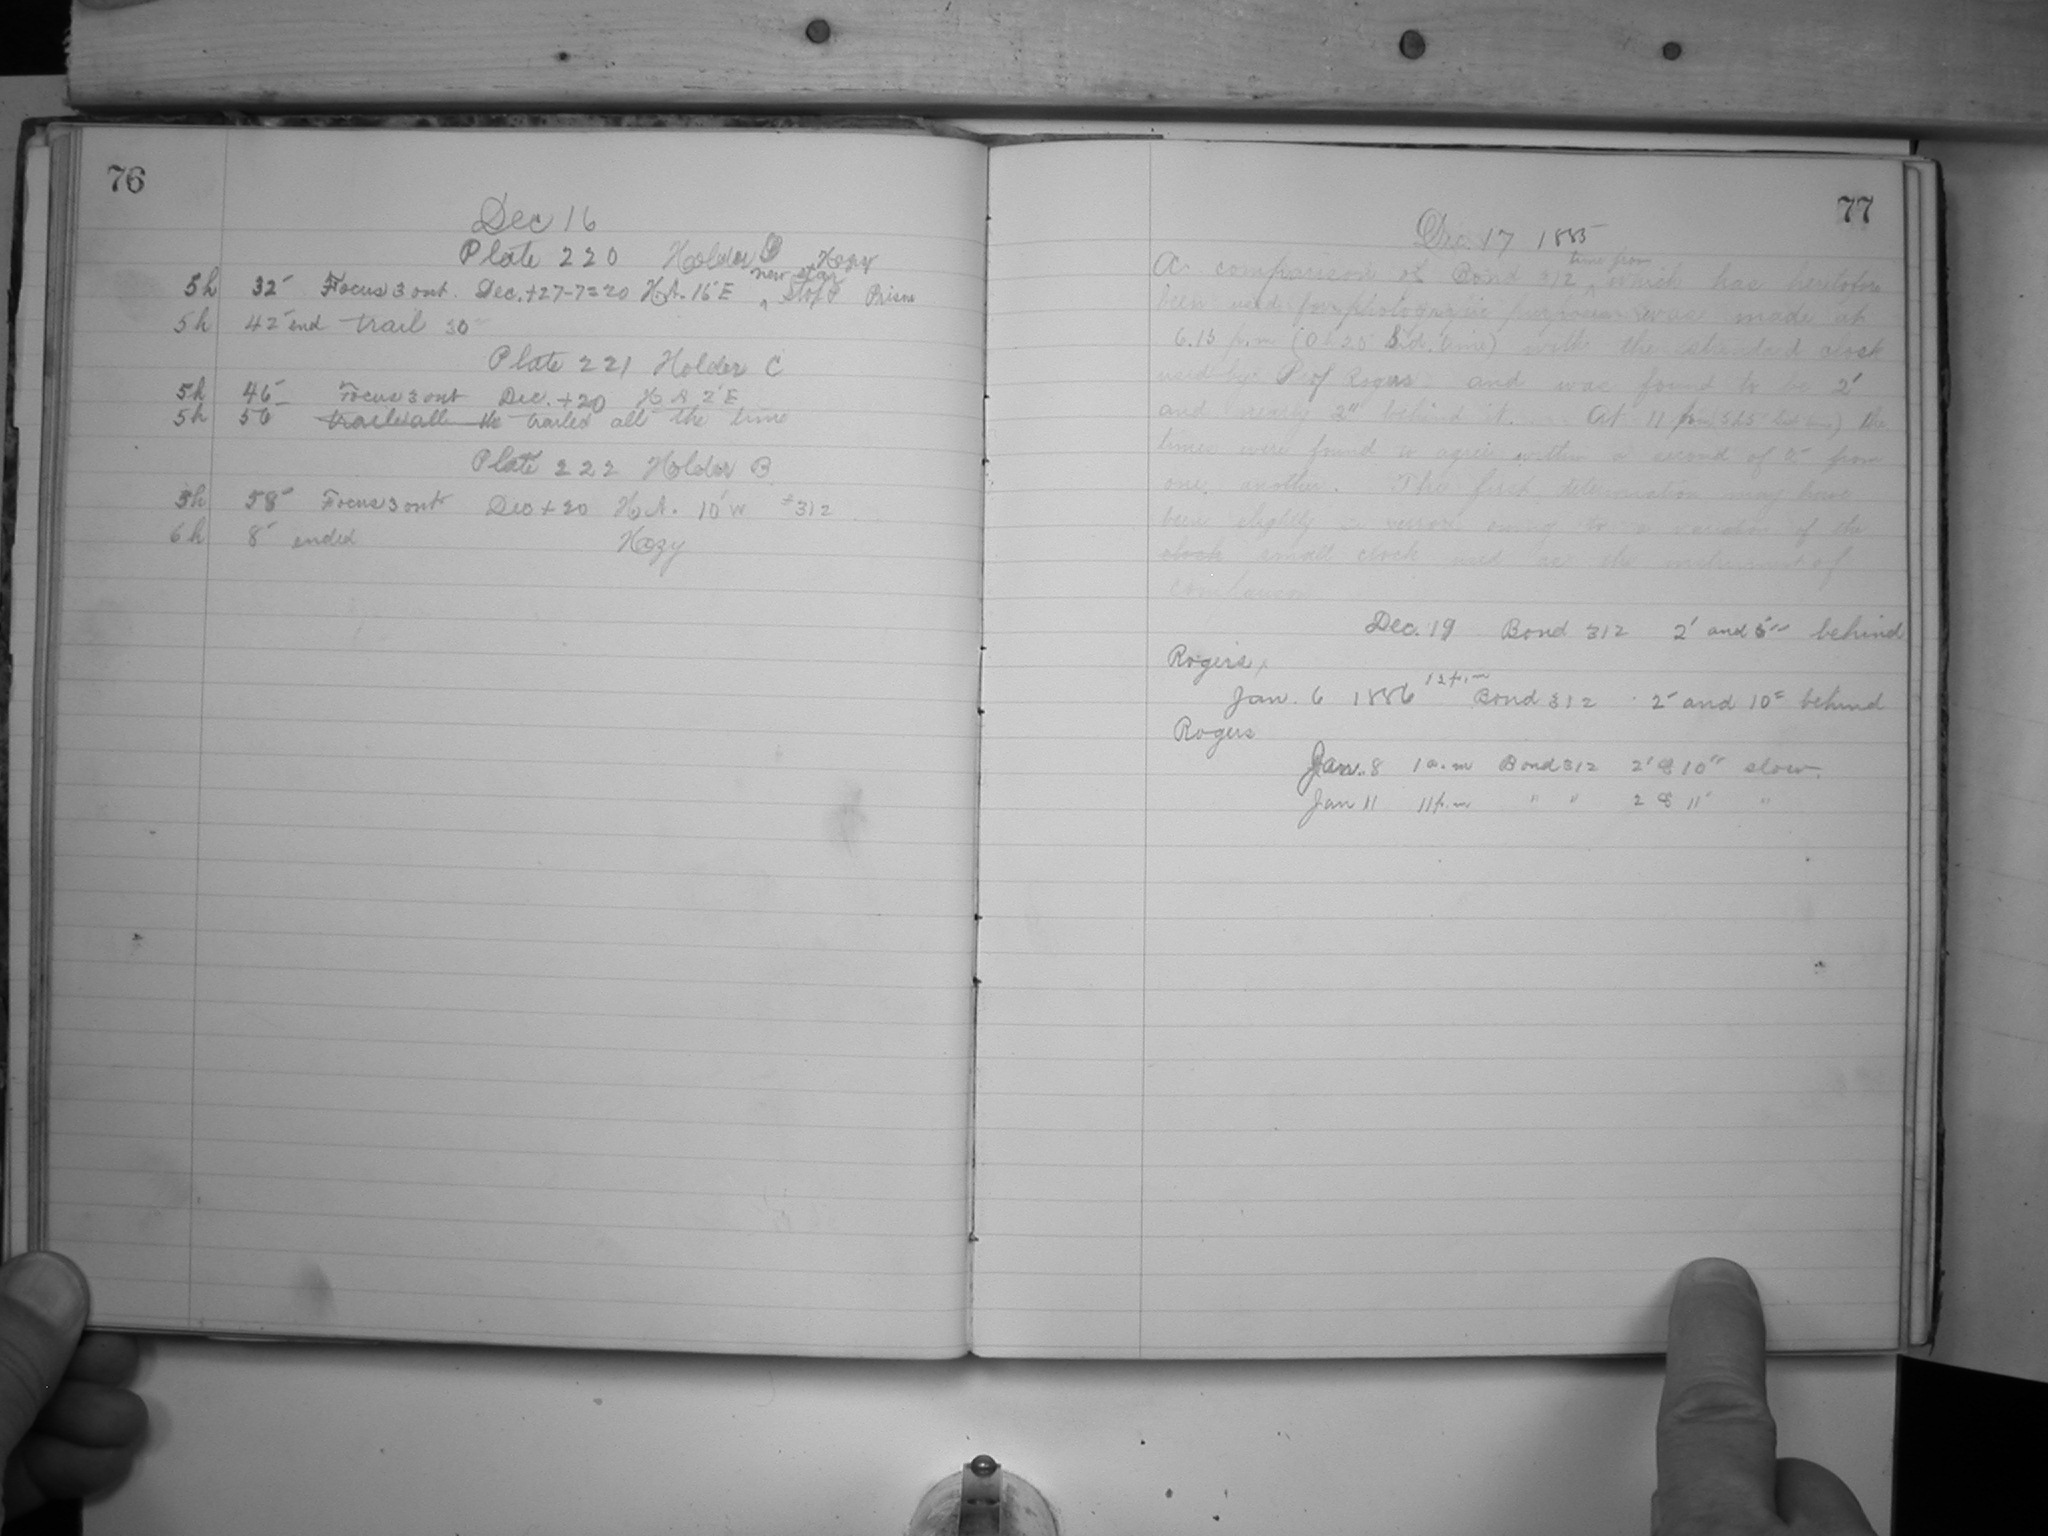 76
Dec 16
Plate 220 Holder D Hazy
5h 32 Focus 3 out. Dec. +27-7=20 H.A. 16 E ^ new star Stop Prism
5h 42 end trail 30
Plate 221 Holder C
5h 46 Focus 3 out Dec. +20 H A 2' E
5h 56 trailed all the trailed all the time
Plate 222 Holder B
5h 58 Focus 3 out Dec + 20 H.A. 10' W 312
6h 8 ended Hazy
77
Dec. 17 1885
A comparison of Bond 312 ^ time from which has heretofore
been used for photographic purposes was made at
6.15 p.m (0h 25 Sid. time) with the standard clock
used by Prof Rogers and was found to be 2'
and nearly 3" behind it. At 11 p.m. the
times were found to agree within a second of from
one another. The first determination may have
been slightly in error owing to a variation of the
clock small clock used as the instrument of
comparison
Dec. 19 Bond 312 2' and 5" behind
Rogers,
Jan. 6 1886 12 p.m Bond 312 2' and 10" behind
Rogers
Jan. 8 1 a.m Bond 312 2' & 10" slow.
Jan 11 11 p.m " " 2 & 11" "